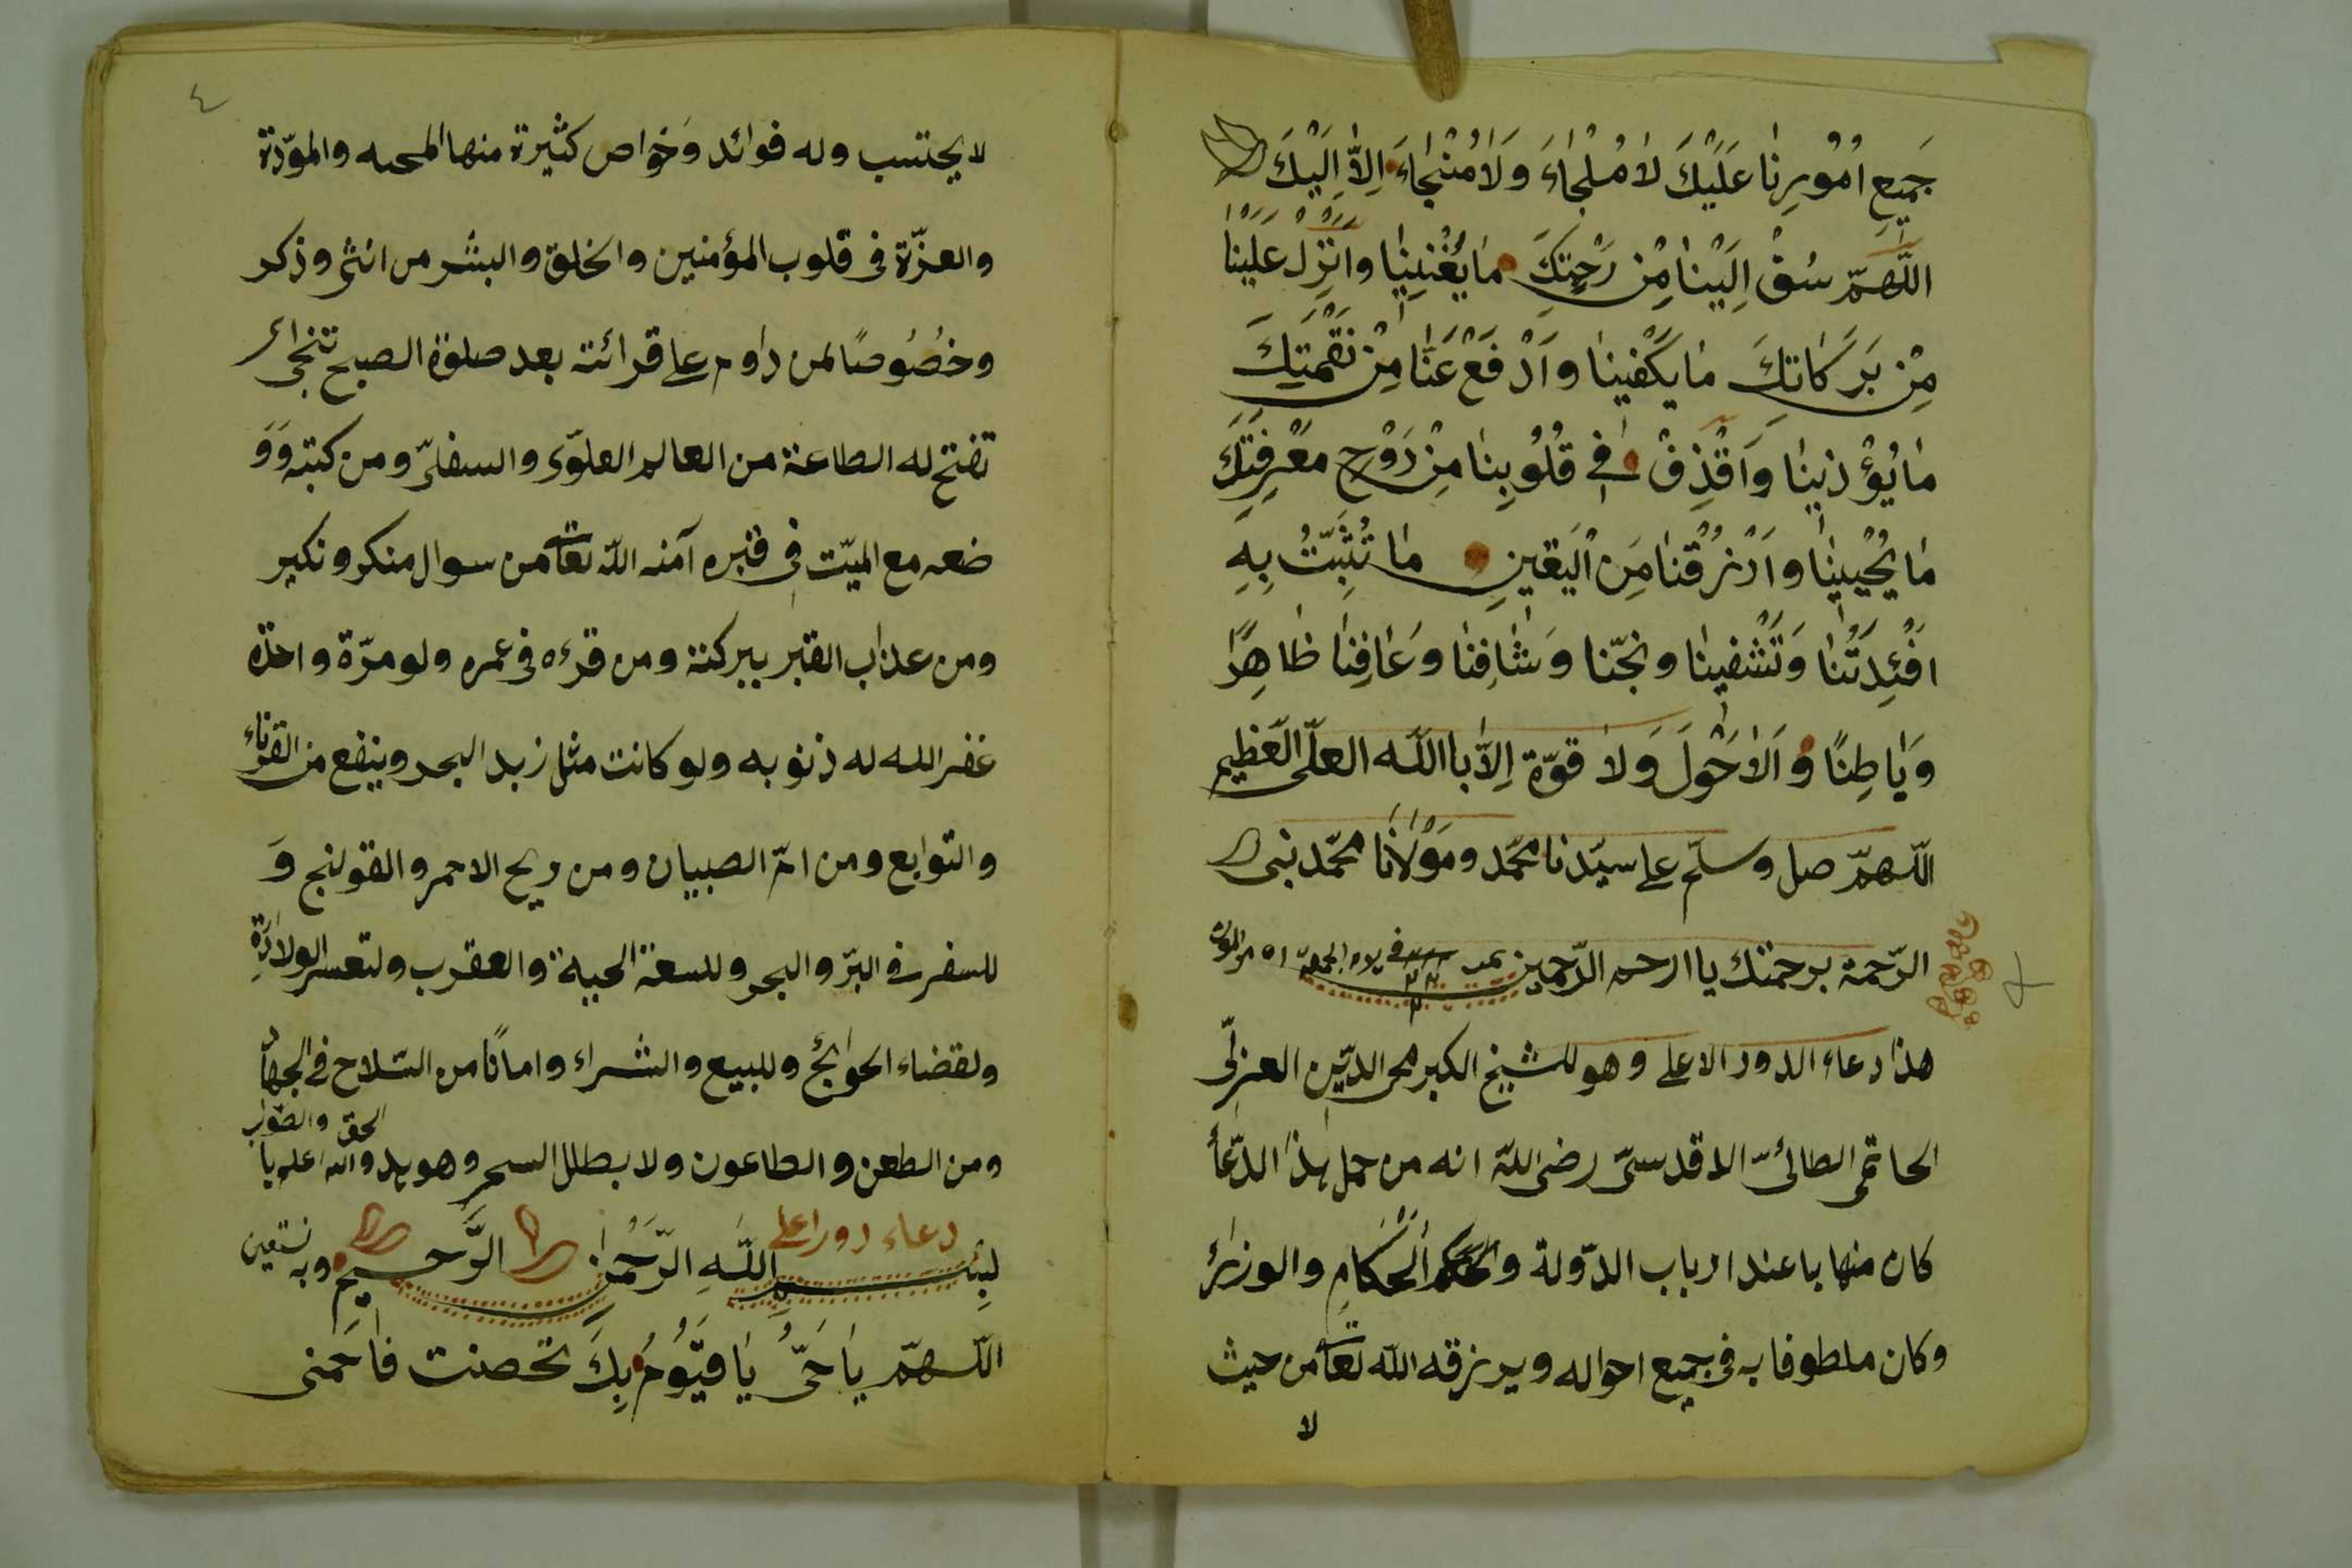 جَمِيعِ اُمُورِنَا عَلَيْكَ لَا مُلْجَاءَ وَلَا مُنْجَاءَ اِلاَّ اِلَيْكَ
اللّٰهمّ سُقْ اِلَيْنَا مِنْ رَحْمَتِكَ مَا يُغْنِينَا وَاَنْزِلْ عَلَيْنَا
مِنْ بَرَكَاتِكَ مَا يَكْفِينَا وَاَدْفَعْ عَنَّا مِنْ نَقْمَتِكَ
مَا يُؤْذِينَا وَاَقْذِفْ فِي قُلُوبِنَا مِنْ رَوْحِ مَعْرِفَتِكَ
مَا يُحْيِينَا وَاَرْزُقْنَا مِنَ اْليَقِينِ مَا تُثَبِّتُ بِهِ
افْئِدَتَنَا وَتَشْفِينَا ونجّنا وَشَافِنَا وَعَافِنَا ظَاهِرًا
وَبَاطِنًا وَالَاحَوْلَ وَلا قوّة اِلاَّ باالله العلّى العَظيم
اللّهمّ صل وسلّم على سيّدنا محمّد ومَوْلَانَا محمّد نبى
الرّحمة برحمتك يا ارحم الرّحمين
هذا دعاء الدور الاعلى وهو للشيخ الكبر محى الدّين العزلّى
الحاتمى الطائىّ الاقدسىّ رضى اللّه انه من حمل هذا الدّعأ
كان منها با عند ارباب الدّولة والحكم الْحُكَّامِ والوزرائ
وكان ملطوفا به فى جميع احواله ويرزقه اللّه تعا من حيث
لا
٤
لا يحتسب وله فوائد وَخواص كثيرة منها المحبه والموّدة
والعزّة فى قلوب المؤمنين والخلق والبشر من انثى وذكر
وخصُوصًا لمن داوم على قرائته بعد صلوة الصبح
تفتح له الطاعة من العالم العلوّى والسفلىّ ومن كتبه وَوَ
ضعه مع الميّت فى قبره آمنه اللّه تعا من سوال منكر ونكير
ومن عذاب القبر ببركته ومن قرءه فى عمره ولو مرّة واحدة
غفر الله له ذنوبه ولو كانت مثل زبد البحر وينفع من القرناء
والتوابع ومن امّ الصبيان ومن ريح الاحمر والقولنج وَ
للسفر فى البرّ والبحر وللسعة الحية والعقرب ولتعسر الولادَةِ
ولقضاء الحوائج وللبيع والشراء وامانًا من السّلاح فى الجهاد
ومن الطعن والطاعون ولابطلل السحر وهو يد واللّه اعلم با
الحق والصّواب
دعاء دور اعلى
بِسْمِ اللّهِ الرّحْمن الرَّحيمِ وبه نستعين
اللّهمّ يَا حَىُّ يَا قيَّوُمُ بِكَ تحصنت فاحمنى